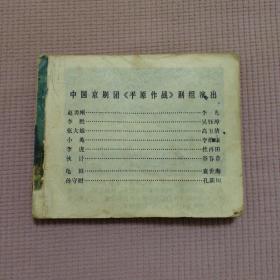 中国京剧团《平原作战》剧组演出
赵勇刚 李光
李胜 吴钰璋
张大娘 高玉倩
小英
李虎
伙计 谷春章
龟田 袁世海
孙守财 孔新垣